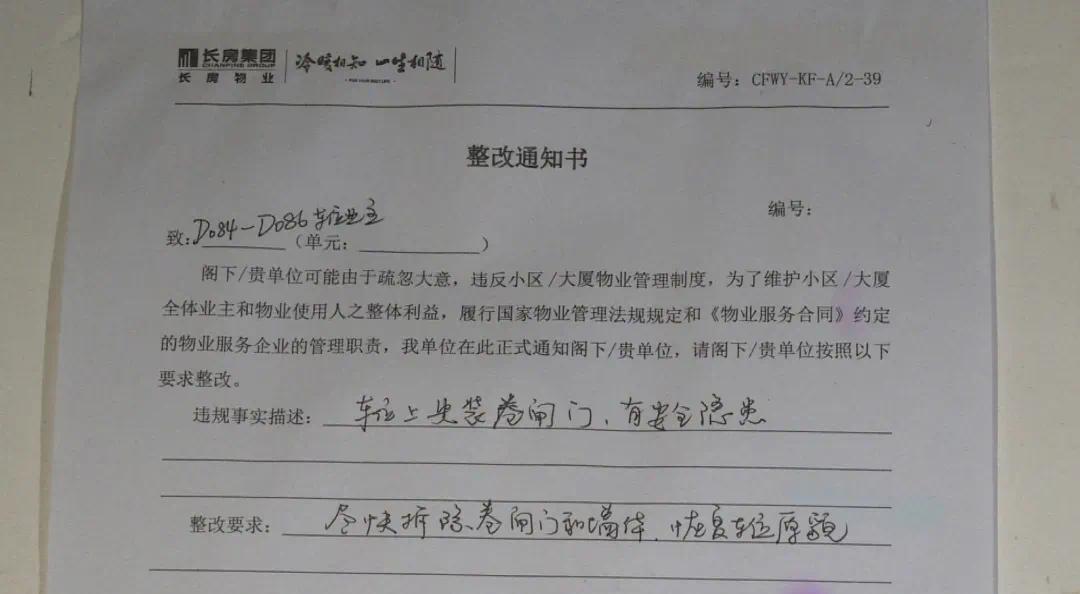 长房集团
CHANFINE GROUP
长房物业
冷暖相知 一生相随
· FOR YOUR BEST LIFE ·
编号：CFWY-KF-A/2-39
整改通知书
编号：
致：D084-D086车位业主（单元：）
阁下/贵单位可能由于疏忽大意，违反小区/大厦物业管理制度，为了维护小区/大厦
全体业主和物业使用人之整体利益，履行国家物业管理法规规定和《物业服务合同》约定
的物业服务企业的管理职责，我单位在此正式通知阁下/贵单位，请阁下/贵单位按照以下
要求整改。
违规事实描述：车位上安装卷闸门、有安全隐患
整改要求：尽快拆除卷闸门和墙体、恢复车位原貌